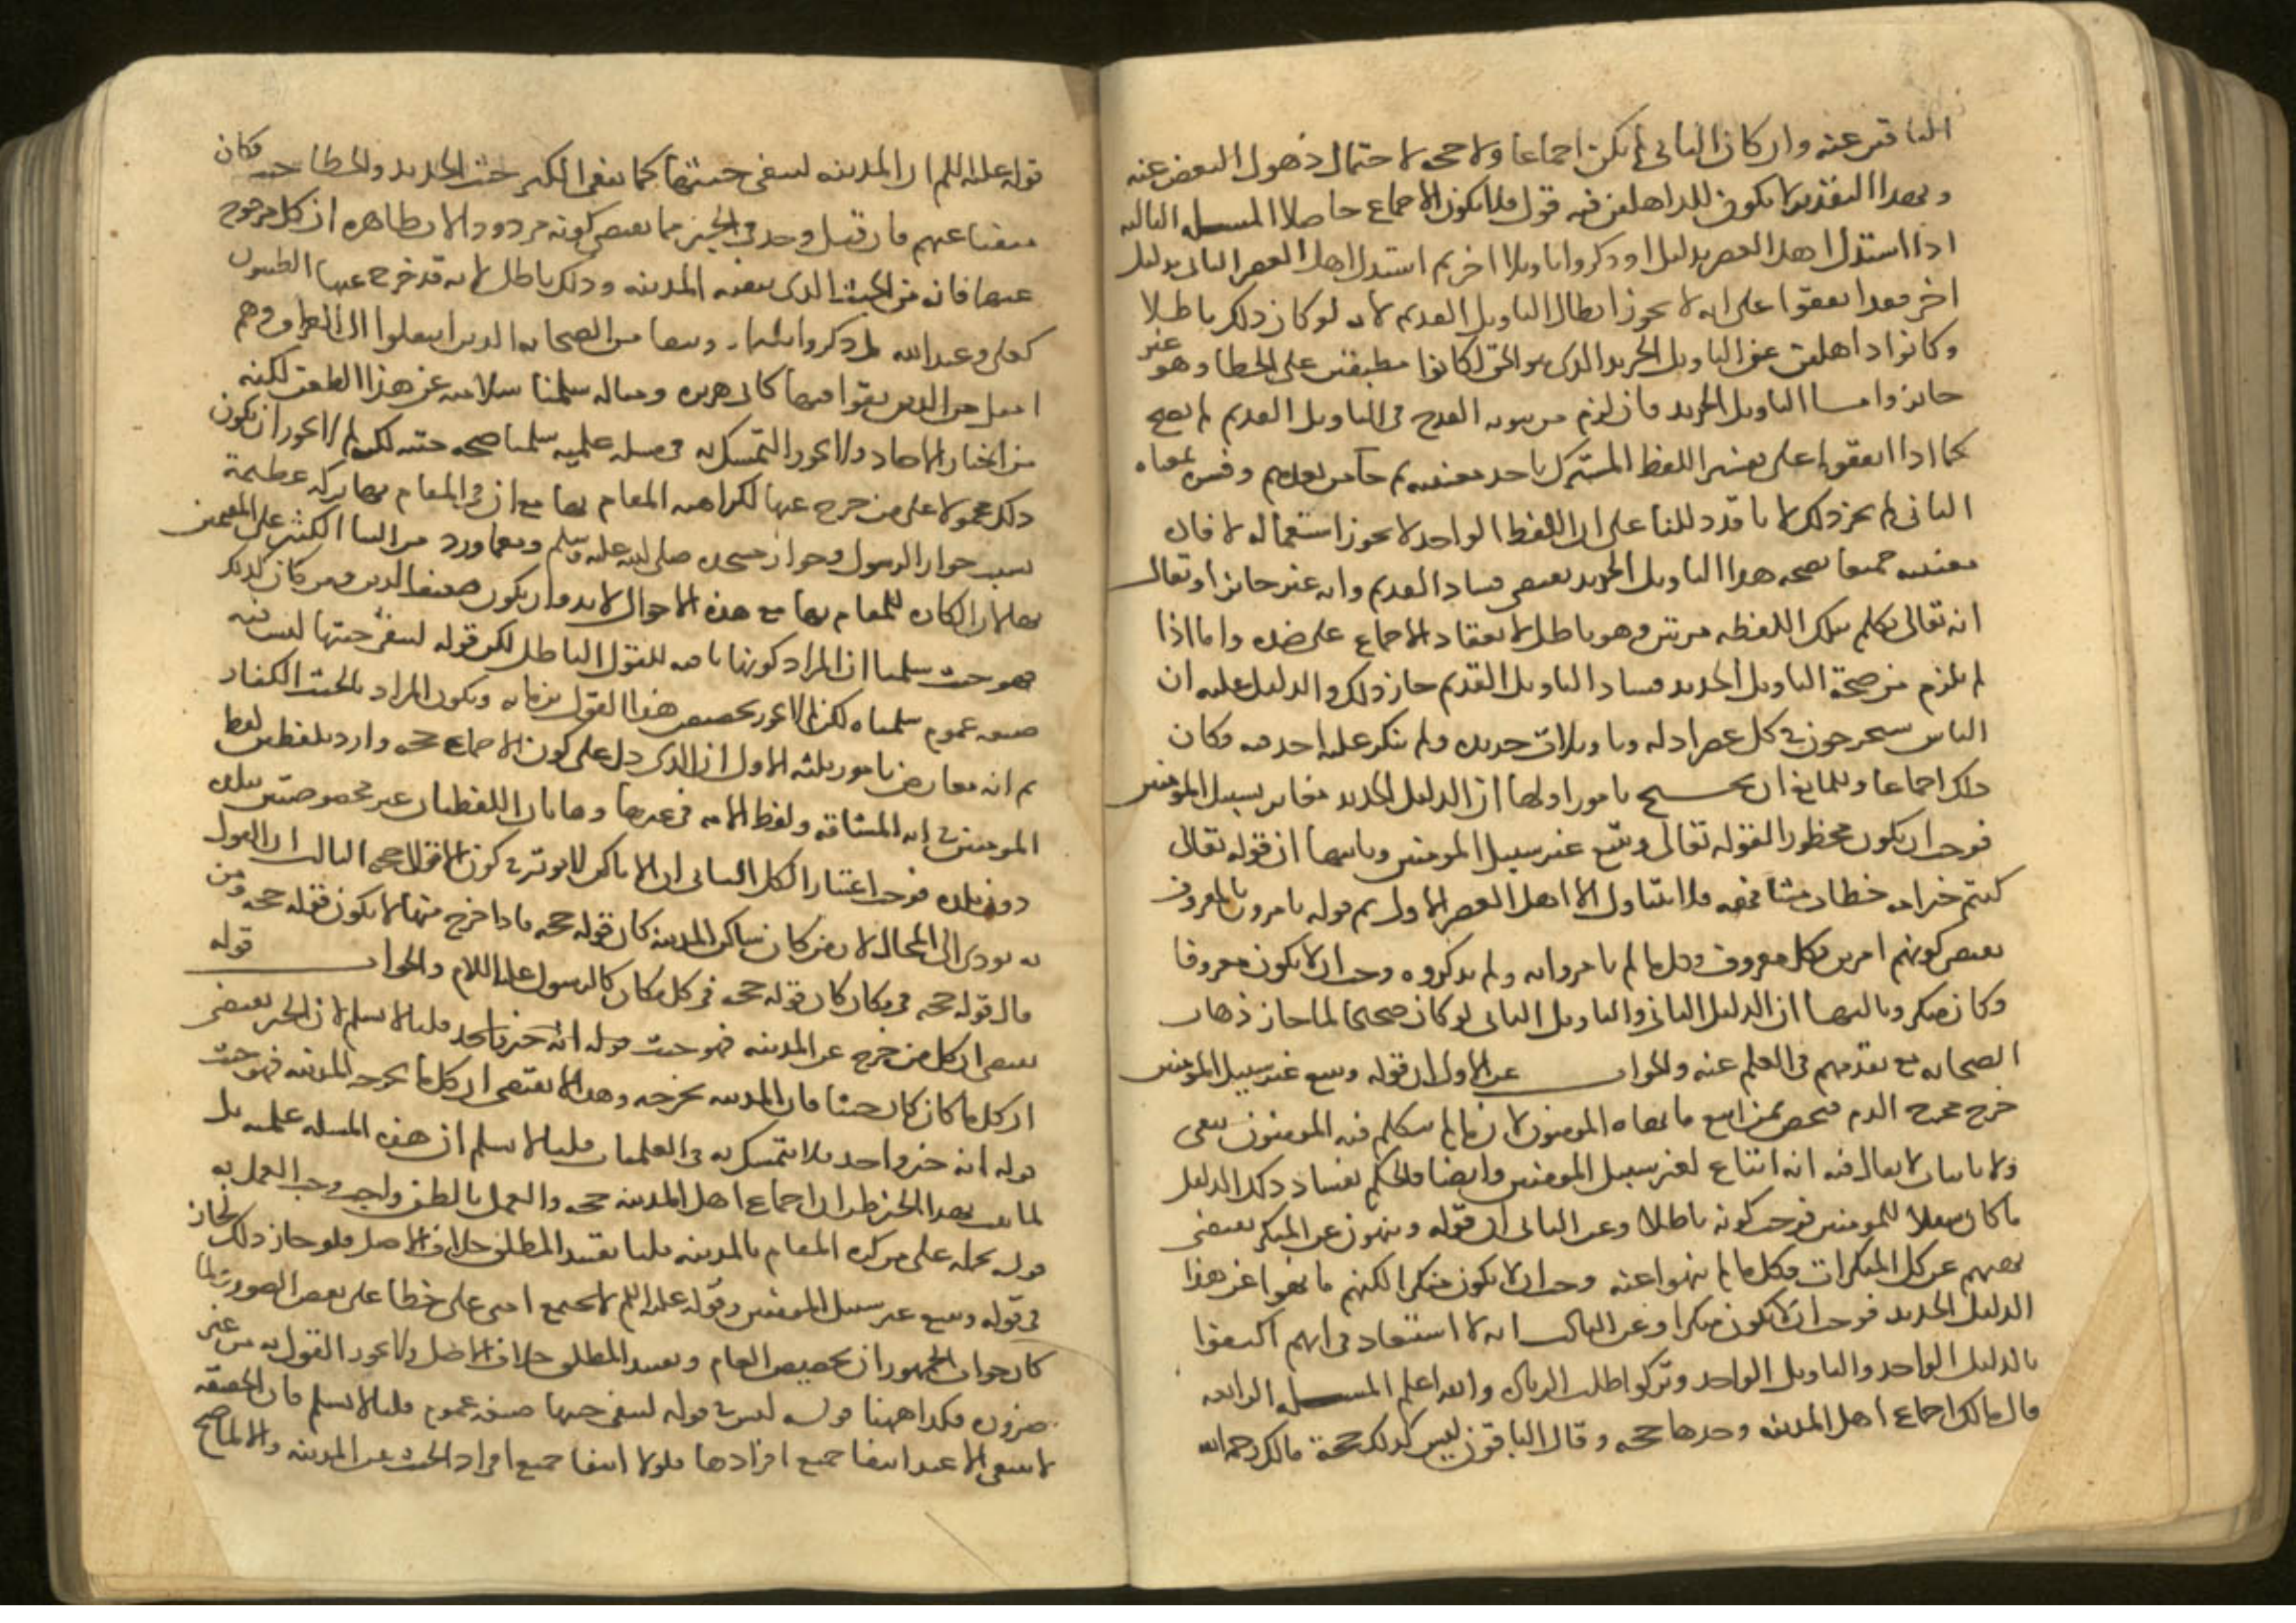 الباقين عنه وان كان الثاني لم يكن اجماعا ولا حجه لاحتمال ذهول البعض عنه
وبهذا التقدير لا يكون للذاهلين فيه قول فلا يكون الاجماع حاصلا المسله الثالثه
اذا استدل اهل العصر بدليل او ذكروا تاويلا اخر ثم استدل اهل العصر الثاني بدليل
اخر فقد اتفقوا على انه لا يجوز ابطال التاويل القديم لانه لو كان ذلك باطلا
وكانوا ذاهلين عن التاويل الجديد الذي هو الحق لكانوا مطبقين على الخطا وهو غير
جائز واما التاويل الجديد فان لزم من ثبوته القدح في التاويل القديم لم يصح
كما اذا اتفقوا على تفسير اللفظ المشترك باحد معنييه ثم جا من بعدهم وفسره بمعناه
الثاني لم يجز ذلك لانا قد دللنا على ان اللفظ الواحد لا يجوز استعماله لافاده
معنييه جميعا فصحه هذا التاويل الجديد يقتضي فساد القديم وانه غير جائز او يقال
انه تعالى تكلم بتلك اللفظه مرتين وهو باطل لانعقاد الاجماع على ضده واما اذا
لم يلزم من صحة التاويل الجديد فساد التاويل القديم جاز ذلك والدليل عليه ان
الناس يستخرجون في كل عصر ادله وتاويلات جديده ولم ينكر عليه احد منه فكان
ذلك اجماعا وللمانع ان يحتج بامور اولها ان الدليل الجديد مغاير لسبيل المومنين
فوجب ان يكون محظورا لقوله تعالى ويتبع غير سبيل المومنين وثانيها ان قوله تعالى
كنتم خير امه خطاب مشافهه فلا يتناول الا اهل العصر الاول ثم قوله يامرون بالمعروف
يقتضي كونهم امرين بكل معروف وكل ما لم يامروا به ولم يذكروه وجب ان لا يكون معروفا
وكان منكرا وثالثها ان الدليل الثاني والتاويل الثاني لو كان صحيحا لما جاز ذهاب
الصحابه مع تقدمهم في العلم عنه والجواب عن الاول ان قوله ويتبع غير سبيل المومنين
خرج مخرج الذم فيختص بمن اتبع ما نفاه المومنون لان ما لم يتكلم فيه المومنون بنفي
ولا باثبات لا يقال فيه انه اتباع لغير سبيل المومنين وايضا فالحكم بفساد ذلك الدليل
ما كان سبيلا للمومنين فوجب كونه باطلا وعن الثاني ان قوله وينهون عن المنكر يقتضي
نهيهم عن كل المنكرات فكل ما لم ينهوا عنه وجب ان لا يكون منكرا لكنهم ما نهوا عن هذا
الدليل الجديد فوجب ان لا يكون منكرا وعن الثالث انه لا استبعاد في انهم اكتفوا
بالدليل الواحد والتاويل الواحد وتركوا طلب الزياده والله اعلم المسله الرابعه
قال مالك اجماع اهل المدينه وحدها حجه وقال الباقون ليس كذلك حجة مالك رحمه الله
قوله عليه السلم ان المدينه لتنفي خبثها كما ينفي الكير خبث الحديد والخطا خبث فكان
منفيا عنهم فان قيل وجد في الخبر ما يقتضي كونه مردودا لان ظاهره ان كل من خرج
عنها فانه من الخبث الذي تنفيه المدينه وذلك باطل لانه قد خرج عنها الطيبون
كعلي وعبد الله بل ذكروا ثلثمايه ونيفا من الصحابه الذين انتقلوا الى العراق وهم
امثل من الذين بقوا فيها كابي هريره وامثاله سلمنا سلامته عن هذا الطعن لكنه
من اخبار الاحاد ولا يجوز التمسك به في مسله علميه سلمنا صحه متنه لكن لم لا يجوز ان يكون
ذلك محمولا على من خرج عنها لكراهيه المقام بها مع ان في المقام بها بركه عظيمة
بسبب جوار الرسول وجوار مسجده صلى الله عليه وسلم ومع ما ورد من الثنا الكثير على المقيمين
بها لان الكاره للمقام بها مع هذه الاحوال لا بد وان يكون ضعيف الدين ومن كان كذلك
فهو خبث سلمنا ان المراد كونها نافيه للقول الباطل لكن قوله لتنفي خبثها ليس فيه
صيغه عموم سلمناه لكن لم لا يجوز تخصيص هذا القول بزمانه ويكون المراد بالخبث الكفار
ثم انه معارض بامور ثلثه الاول ان الذي دل على كون الاجماع حجه وارد بلفظين لفظ
المومنين في ايه المشاقه ولفظ الامه في غيرها وهاتان اللفظتان غير مخصوصتين ببلده
دون بلده فوجب اعتبار الكل الثاني ان الاماكن لا توثر في كون الاقوال حجه الثالث ان القول
به يودي الى المحال لان من كان ساكن المدينه كان قوله حجه فاذا خرج منها لا يكون قوله حجه ومن
قال قوله حجه في مكان كان قوله حجه في كل مكان كالرسول عليه السلام والجواب قوله
يقتضي ان كل من خرج عن المدينه فهو خبث قوله انه خبر واحد قلنا لا نسلم لان الخبر يقتضي
ان كل ما كان كان خبثا فان المدينه تخرجه وهذا لا يقتضي ان كل ما تخرجه المدينه فهو خبث
قوله انه خبر واحد فلا يتمسك به في العلميات قلنا لا نسلم ان هذه المسله علميه بل
لما ثبت بهذا الخبر ظن ان اجماع اهل المدينه حجه والعمل بالظن واجب وجب العمل به
قوله نحمله على من كره المقام بالمدينه قلنا تقييد المطلق خلاف الاصل فلو جاز ذلك لجاز
في قوله ويتبع غير سبيل المومنين وقوله عليه السلم لا تجتمع امتي على خطا على بعض الصور ولما
كان جواب الجمهور ان تخصيص العام وتقييد المطلق خلاف الاصل ولا يجوز القول به من غير
ضروره فكذا ههنا قوله ليس في قوله لتنفي خبثها صيغه عموم قلنا لا نسلم فان الحقيقه
لا تنتفي الا عند انتفا جميع افرادها فلولا انتفا جميع افراد الخبث عن المدينه والا لما صح